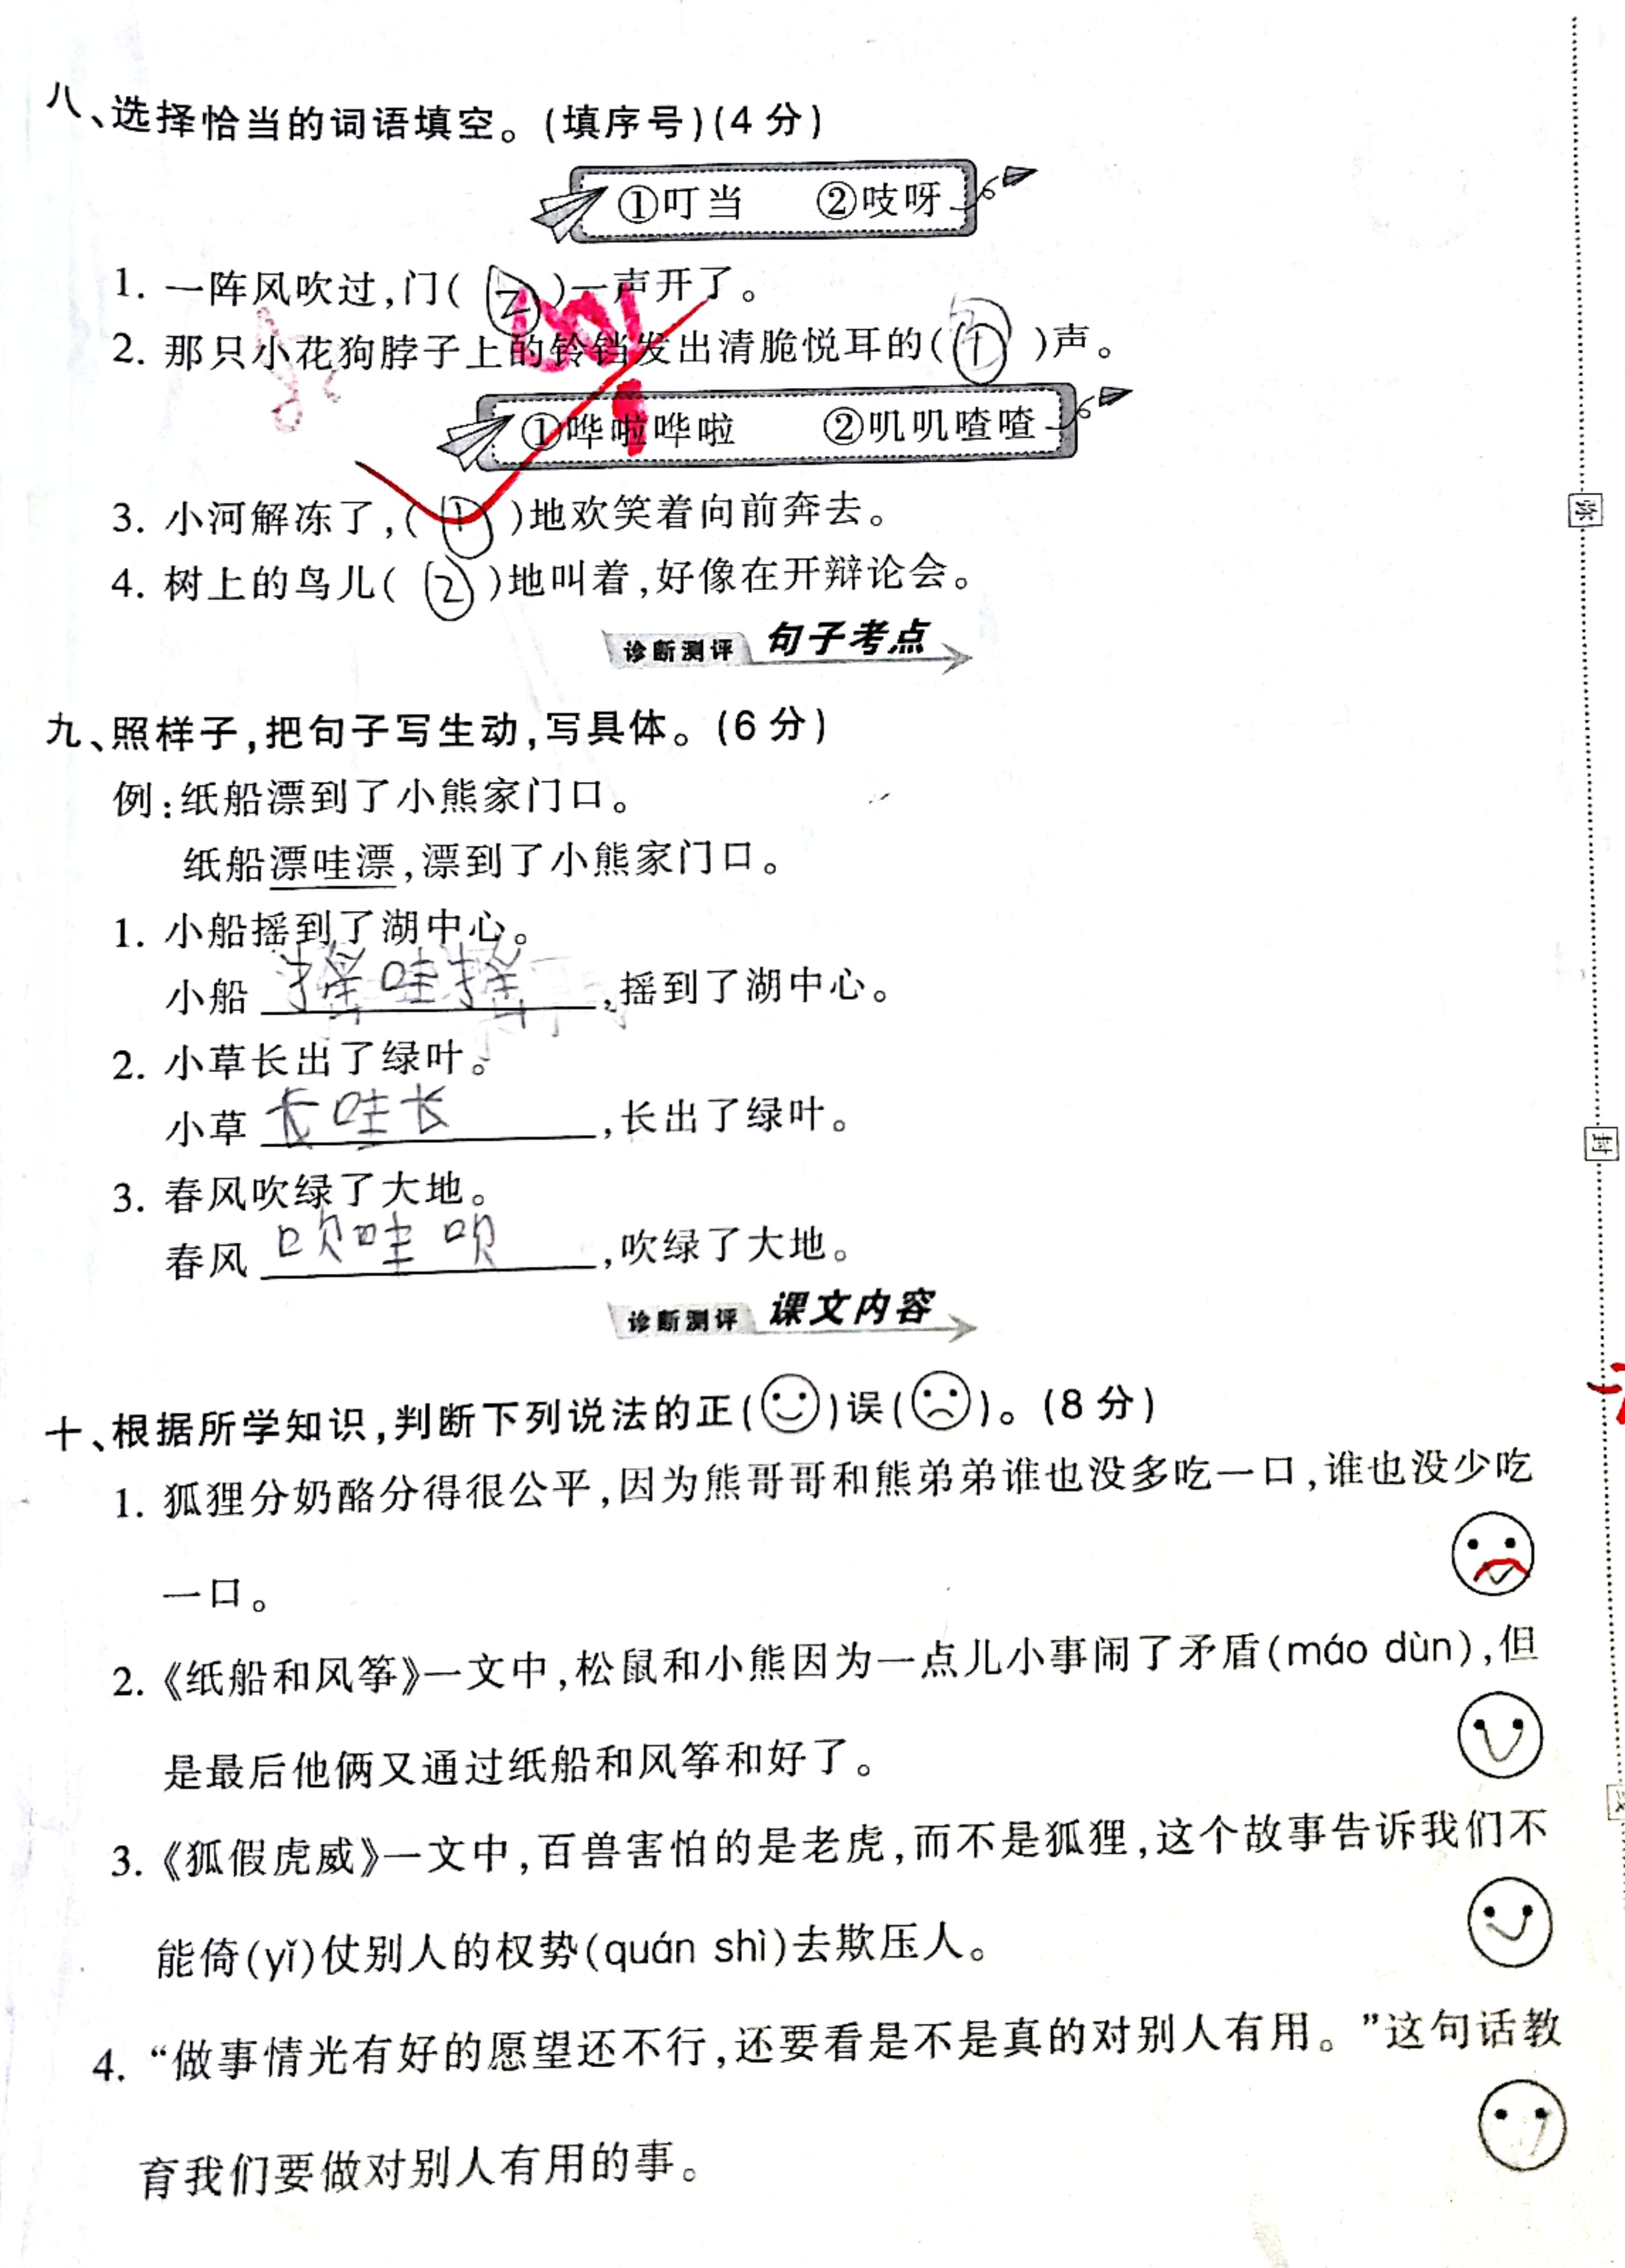 八、选择恰当的词语填空。(填序号)(4分)
①叮当 ②吱呀
1. 一阵风吹过,门( ② )一声开了。
2. 那只小花狗脖子上的铃铛发出清脆悦耳的( ① )声。
①哗啦哗啦 ②叽叽喳喳
3. 小河解冻了,( ① )地欢笑着向前奔去。
4. 树上的鸟儿( ② )地叫着,好像在开辩论会。
诊断测评 句子考点
九、照样子,把句子写生动,写具体。(6分)
例:纸船漂到了小熊家门口。
纸船漂哇漂,漂到了小熊家门口。
1. 小船摇到了湖中心。
小船 摇哇摇 ,摇到了湖中心。
2. 小草长出了绿叶。
小草 长哇长 ,长出了绿叶。
3. 春风吹绿了大地。
春风 吹哇吹 ,吹绿了大地。
诊断测评 课文内容
十、根据所学知识,判断下列说法的正( )误( )。(8分)
1. 狐狸分奶酪分得很公平,因为熊哥哥和熊弟弟谁也没多吃一口,谁也没少吃
一口。
2.《纸船和风筝》一文中,松鼠和小熊因为一点儿小事闹了矛盾(máo dùn),但
是最后他俩又通过纸船和风筝和好了。
3.《狐假虎威》一文中,百兽害怕的是老虎,而不是狐狸,这个故事告诉我们不
能倚(yǐ)仗别人的权势(quán shì)去欺压人。
4. “做事情光有好的愿望还不行,还要看是不是真的对别人有用。”这句话教
育我们要做对别人有用的事。
弥
封